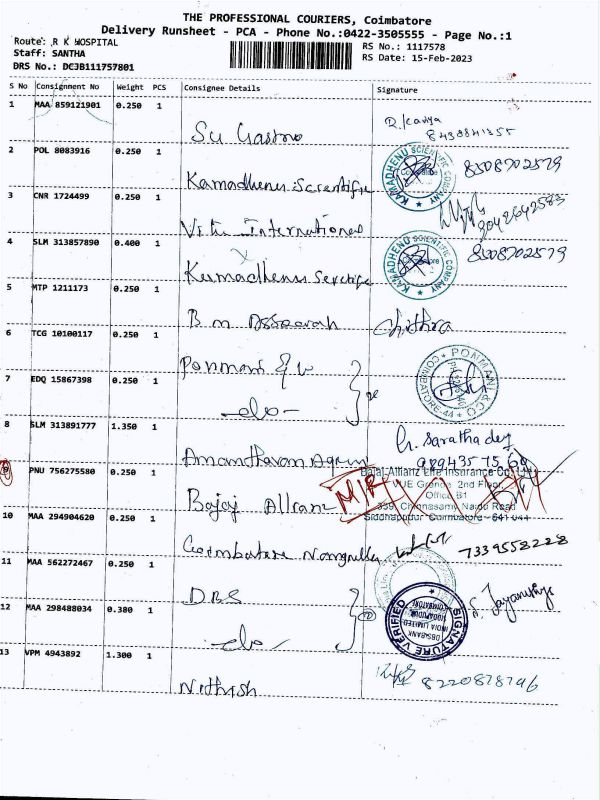 THE PROFESSIONAL COURIERS, Coimbatore
Delivery Runsheet - PCA - Phone No.:0422-3505555 - Page No.:1
Route: R K HOSPITAL
RS No.: 1117578
Staff: SANTHA
RS Date: 15-Feb-2023
DRS No.: DC3B111757801
S No Consignment No Weight PCS Consignee Details Signature
1 MAA 859121901 0.250 1
2 POL 8083916 0.250 1
Kamadhenu Scientific 8508702579
KAMADHENU SCIENTIFIC COMPANY
3 CNR 1724499 0.250 1
International
4 SLM 313857890 0.400 1
Kamadhenu 8508702579
KAMADHENU SCIENTIFIC COMPANY
5 MTP 1211173 0.250 1
B m Chithra
6 TCG 10100117 0.250 1
Ponmani & co
PONMANI & CO
COIMBATORE-44
7 EDQ 15867398 0.250 1
-do-
8 SLM 313891777 1.350 1
Ananthavan
9 PNU 756275580 0.250 1
Bajaj Allianz
Bajaj Allianz Life Insurance Co. Ltd
VUE Grande, 2nd Floor
Office B1
339, Chinnasamy Naidu Road
Siddhapudur Coimbatore - 641 044
10 MAA 294904620 0.250 1
Coimbatore 7339558228
11 MAA 562272467 0.250 1
DBS
12 MAA 298488034 0.380 1
-do-
SIGNATURE VERIFIED
DBS BANK INDIA LIMITED
13 VPM 4943892 1.300 1
Nithish 8220828796